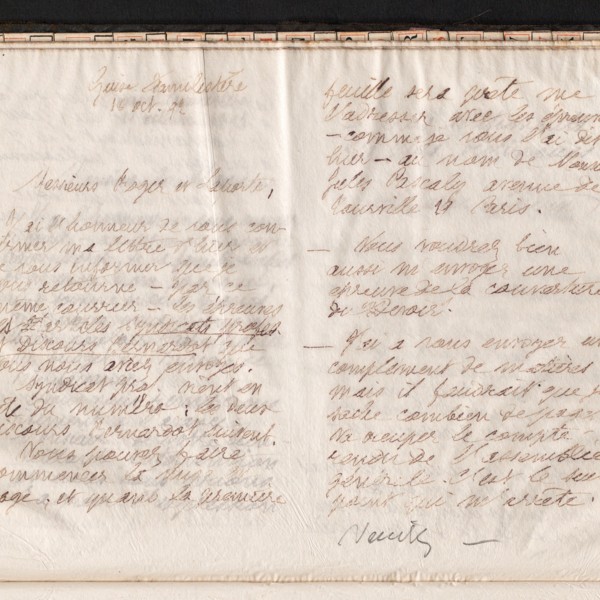 Guise Familistère
16 oct. 92
Messieurs Roger et Laporte,
J'ai l'honneur de vous con-
firmer ma lettre d'hier et
de vous informer que je
vous retourne - par ce
même courrier - les épreuves
Discours Bernardot que
vous nous avez envoyés.
Syndicat pro. vient en
tête du numéro; les deux
discours Bernardot suivent.
Vous pouvez faire
commencer la mise en
page, et quand la première
feuille sera prête me
l'adresser avec les épreuves
- comme je vous l'ai dit
hier - au nom de Monsieur
Jules Pascaly avenue de
Tourville 21 Paris.
— Vous voudrez bien
aussi m'envoyer une
épreuve de la couverture
du Devoir.
— J'ai à vous envoyer un
complément de matières
mais il faudrait que je
sache combien de pages
va occuper le compte
rendu de l'assemblée
générale. C'est le seul
point qui m'arrête.